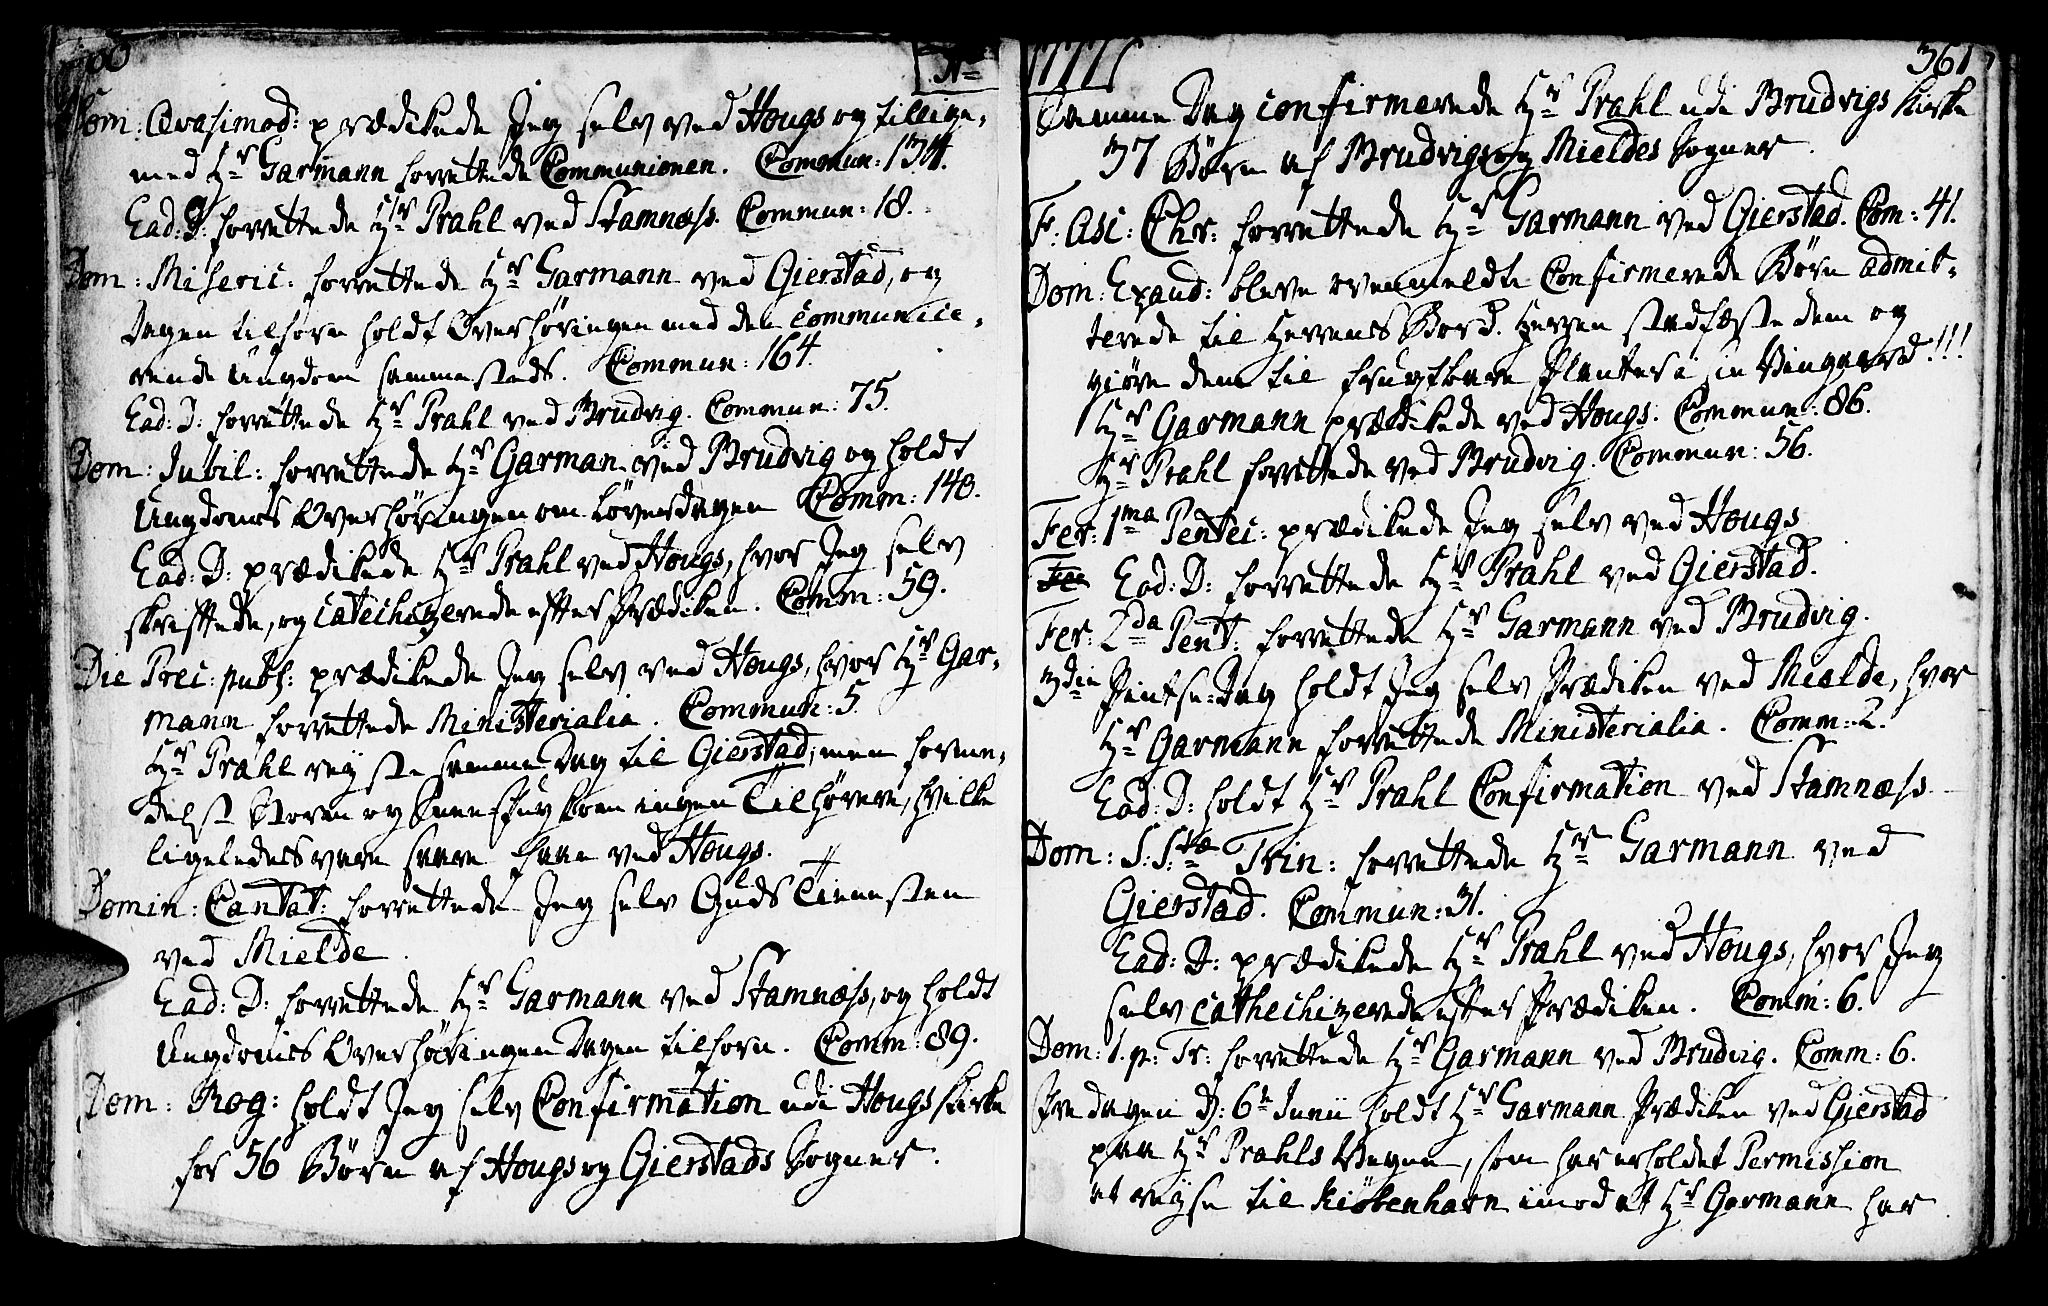 360
Ao
Dom: Qvasimod: prædikede Jeg selv ved Hougs og tillige-
med Hr Garmann forrettede Communionen. Commun: 134.
Ead: D: forrettede Hr Prahl ved Stamnæss. Commun: 18.
Dom: Miseric: forrettede Hr Garmann ved Gierstad, og
Dagen tilforn holdt Overhøringen med den communice-
rende Ungdom sammesteds. Commun: 164.
Ead: D: forrettede Hr Prahl ved Brudvig. Commun: 75.
Dom: Jubil: forrettede Hr Garman ved Brudvig og holdt
Ungdoms Overhøringen om Løverdagen Comm: 140.
Ead: D: prædikede Hr Prahl ved Hougs, hvor Jeg selv
skriftede, og catechizerede efter Prædiken. Comm: 59.
Die Prec: publ: prædikede Jeg selv ved Hougs, hvor Hr Gar-
mann forrettede Ministerialia. Commun: 5.
Hr Prahl reyste samme Dag til Gierstad, men forme-
delst Storm og Sneefog kom ingen Tilhørere, hvilke
ligeledes vare saare faae ved Hougs.
Domin: Cantat: forrettede Jeg selv Guds Tienesten
ved Mielde.
Ead: D: forrettede Hr Garmann ved Stamnæss, og holdt
Ungdoms Overhøringen Dagen tilforn. Comm: 89.
Dom: Rog: holdt Jeg selv Confirmation udi Hougs Kirke
for 56 Børn af Hougs og Gierstads Sogner.
1777
361
Samme Dag confirmerede Hr Prahl udi Brudvigs Kirke
37 Børn af Brudvigs og Mieldes Sogner.
F: Asc: Chr: forrettede Hr Garmann ved Gierstad. Com: 41.
Dom: Exaud: bleve ovenmeldte Confirmerede Børn admit-
terede til Herrens Bord. Herren stadfæste dem og
giøre dem til frugtbare Planter i sin Viingaard!!!
Hr Garmann prædikede ved Hougs. Commun: 86.
Hr Prahl forrettede ved Brudvig. Commun: 56.
Fer: 1ma Pentec: prædikede Jeg selv ved Hougs
Ead: D: forrettede Hr Prahl ved Gierstad.
Fer: 2da Pent: forrettede Hr Garmann ved Brudvig.
3die Pintse-Dag holdt Jeg selv Prædiken ved Mielde, hvor
Hr Garmann forrettede Ministerialia. Comm: 2.
Ead: D: holdt Hr Prahl Confirmation ved Stamnæss.
Dom: S: S:tæ Trin: forrettede Hr Garmann ved
Gierstad. Commun: 31.
Ead: D: prædikede Hr Prahl ved Hougs, hvor Jeg
selv cathechizerede efter Prædiken. Comm: 6.
Dom: 1. p: Tr: forrettede Hr Garmann ved Brudvig. Comm: 6.
Fredagen D: 6te Junii holdt Hr Garmann Prædiken ved Gierstad
paa Hr Prahls Vegne, som har erholdet Permission
at reyse til Kiøbenhavn imod at Hr Garmann har